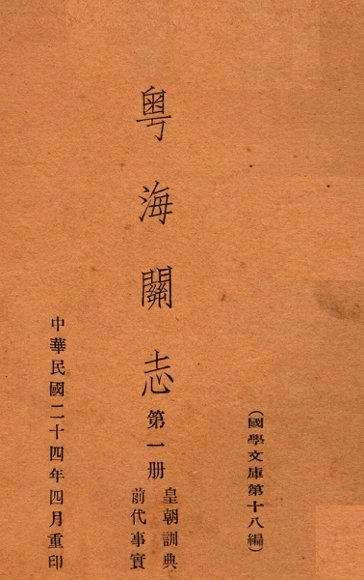 (國學文庫第十八編)
粤海關志 第一册
皇朝訓典
前代事實
中華民國二十四年四月重印